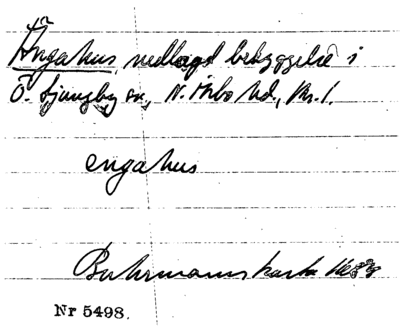 Ängahus, nedlagd bebyggelse i
Ö. Ljungby sn, N. Åsbo hd, Kr. l.
engahus
Buhrmanns karta 1688
Nr 5498.